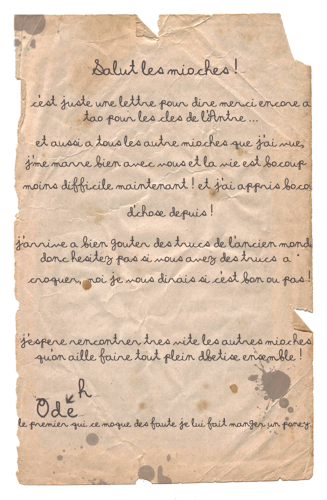 Salut les mioches !
c'est juste une lettre pour dire merci encore a
tao pour les cles de l'Antre...
et aussi a tous les autre mioches que j'ai vue,
j'me marre bien avec vous et la vie est bocoup
moins difficile maintenant ! et j'ai appris boco
d'chose depuis !
j'arrive a bien gouter des trucs de l'ancien mond
donc hesitez pas si vous avez des trucs a
croquer, moi je vous dirais si c'est bon ou pas !
j'espere rencontrer tres vite les autres mioches
qu'on aille faire tout plein d'betise ensemble !
h
Ode
le premier qui ce moque des faute je lui fait manger un poney.